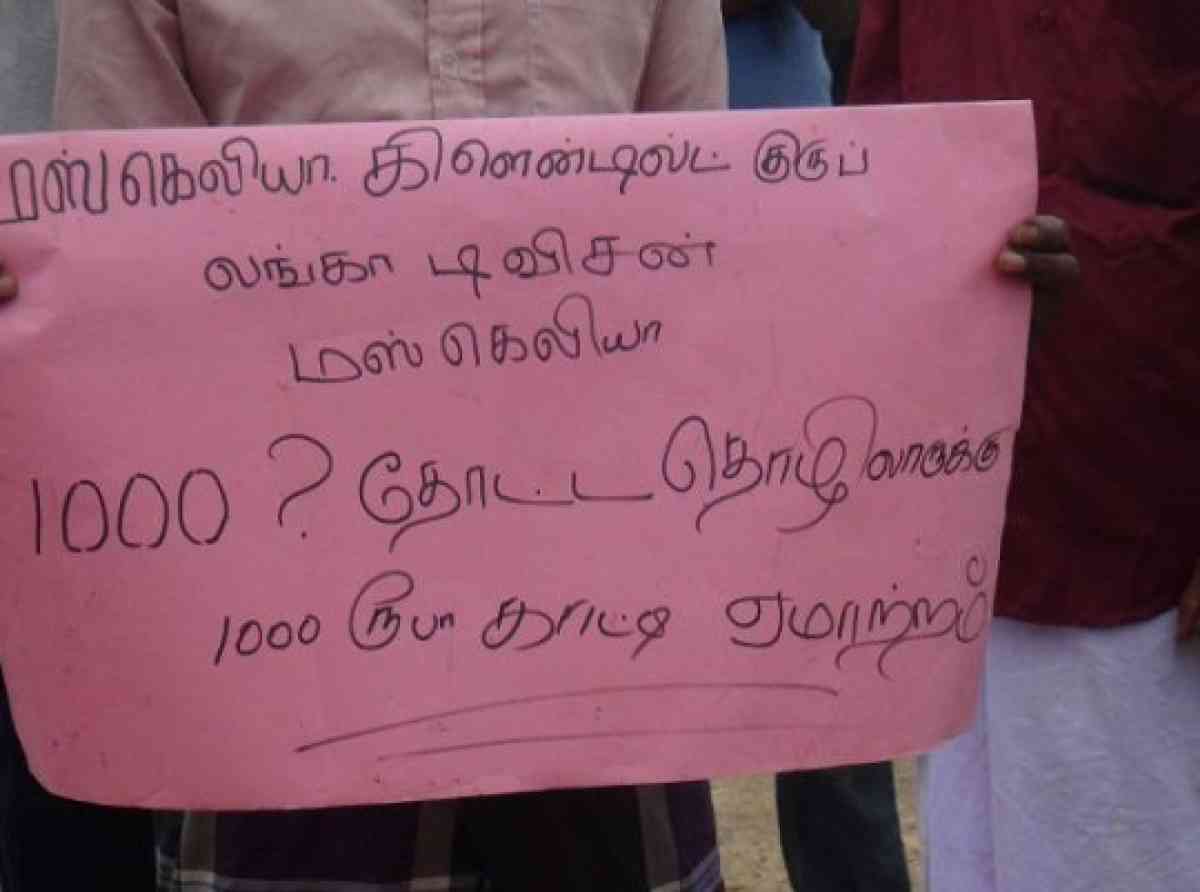 மஸ்கெலியா. கிளெண்டில்ட் குரூப்
லங்கா டிவிசன்
மஸ்கெலியா
1000 ? தோட்ட தொழிலாருக்கு
1000 ரூபா காட்டி ஏமாற்றம்